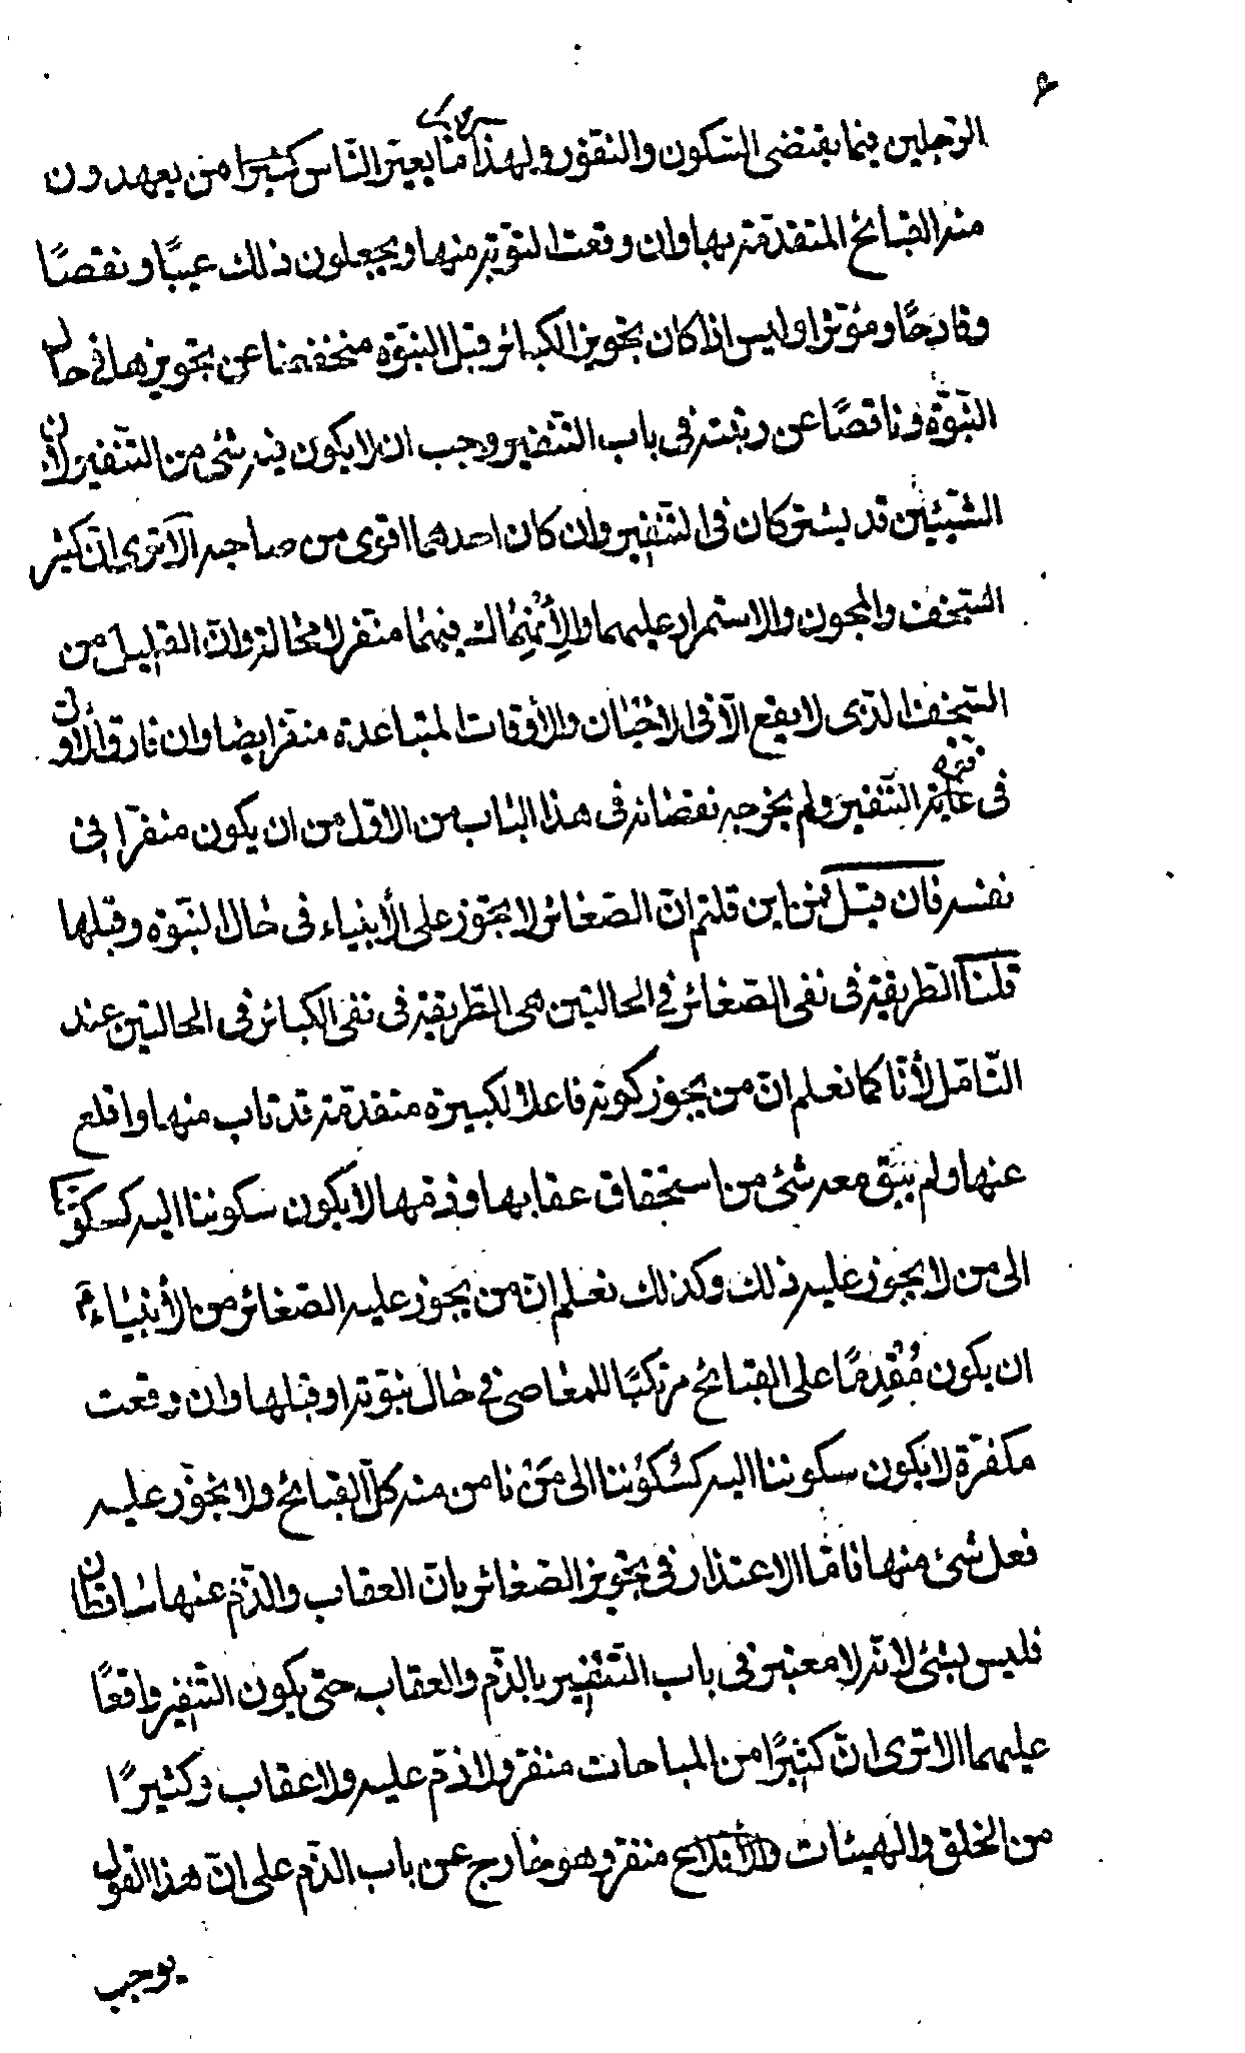 الرّجلين فيما يقتضى السّكون والنّفور ولهذا ما يعيّر النّاس كثيرا من يعهدون
منه القبائح المتقدّمة بها وان وقعت التّوبة منها ويجعلون ذلك عيبًا ونقصًا
وقادحًا ومؤثّرا وليس اذا كان تجويز الكبائر قبل النبوّة منخفضا عن تجويزها فى حال
النّبوّة وناقصًا عن رتبته فى باب التّنفير وجب ان لا يكون فيه شئ من التّنفير لانّ
الشّيئين قد يشتركان فى التّنفير وان كان احدهما اقوى من صاحبه الا ترى انّ كثير
السّخف والمجون والاستمرار عليهما والأنهماك فيهما منفّر لا محالة وانّ القليل من
السّخف الّذى لا يقع الّا فى الاحيان والأوقات المتباعدة منفّر ايضا وان فارق الأوّل
فى قوّة التّنفير ولم يخرجه نقصانه فى هذا الباب من الاوّل من ان يكون منفّرا فى
نفسه فان قيل فمن اين قلتم انّ الصّغائر لا تجوز على الأنبياء فى حال النبّوة وقبلها
قلنا الطّريقة فى نفى الصّغائر فى الحالتين هى الطّريقة فى نفى الكبائر فى الحالتين عند
التّامّل لأنّا كما نعلم انّ من يجوز كونه فاعلا لكبيرة متقدّمة قد تاب منها واقلع
عنها ولم يبق معه شئ من استحقاق عقابها وذمّها لا يكون سكوننا اليه كسكوننا
الى من لا يجوز عليه ذلك وكذلك نعلم انّ من يجوز عليه الصّغائر من الأنبياء ع
ان يكون مُقْدِمًا على القبائح مرتكبًا للمعاصى فى حال نبوّته او قبلها وان وقعت
مكفّرة لا يكون سكوننا اليه كسكوننا الى من نامن منه كلّ القبائح ولا يجوّز عليه
فعل شئ منها فامّا الاعتذار فى تجويز الصّغائر بانّ العقاب والذّم عنها ساقطان
فليس بشئ لانّه لا معتبر فى باب التّنفير بالذّم والعقاب حتى يكون التّنفير واقعًا
عليهما الا ترى انّ كثيرًا من المباحات منفّر ولا ذمّ عليه ولا عقاب وكثيرًا
من الخلق والهيئات منفّر وهو خارج عن باب الذّم على انّ هذا القول
يوجب